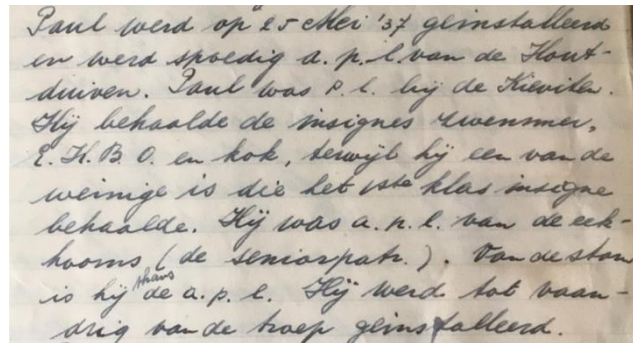 Paul werd op 25 Mei '37 geinstalleerd
en werd spoedig a.p.l van de Hout-
duiven. Paul was p.l. bij de Kieviten.
Hij behaalde de insignes zwemmer,
E.H.B.O. en kok, terwijl hij een van de
weinige is die het 1ste klas insigne
behaalde. Hij was a.p.l. van de eek-
hoorns (de seniorpatr.). Van de stam
is hij thans de a.p.l. Hij werd tot vaan-
drig van de troep geinstalleerd.